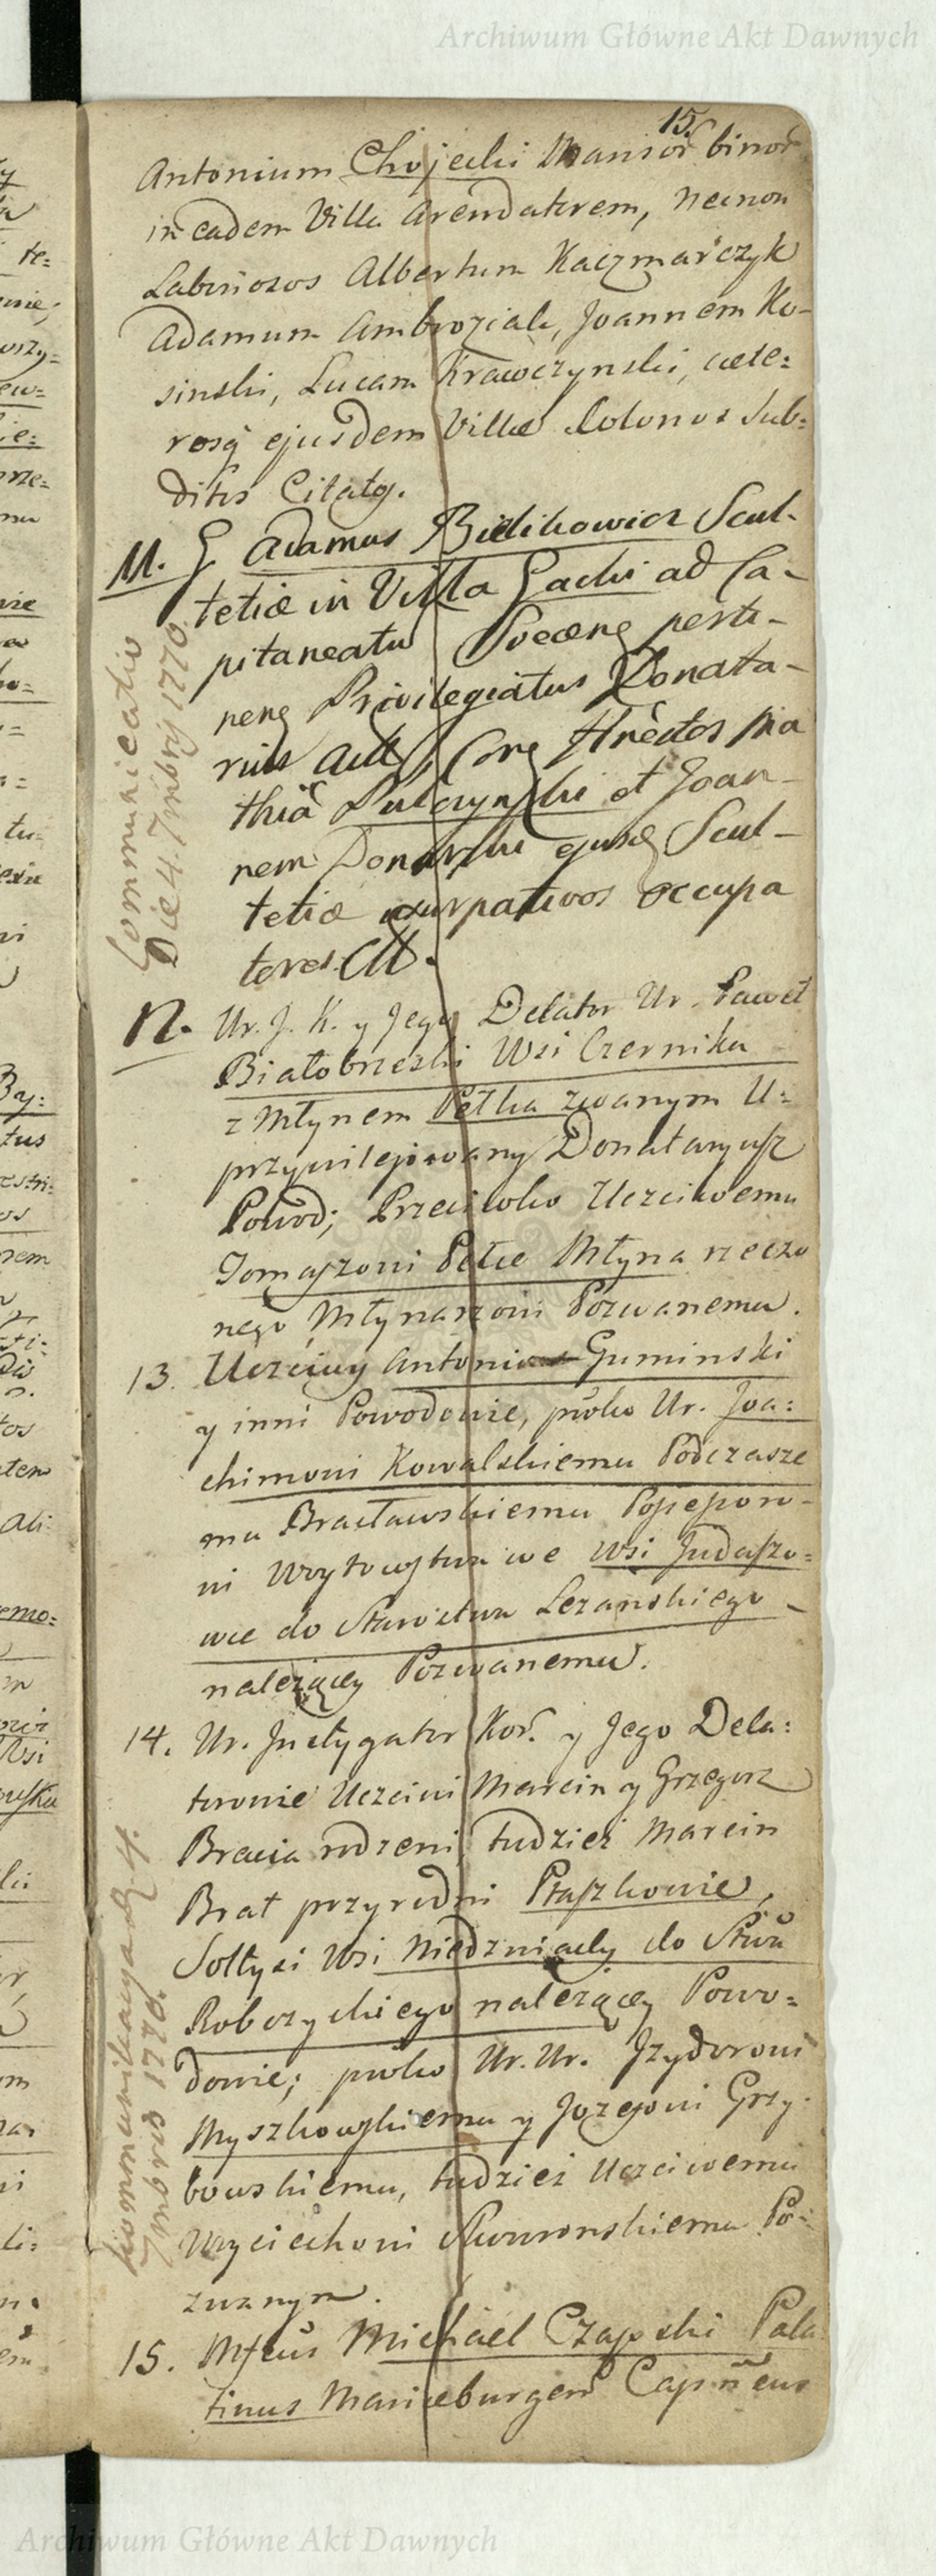 Archiwum Główne Akt Dawnych
15.
Antonium Chojecki Mansor binor
in eadem Villa Arendatorem, necnon
Laboriosos Albertum Kaczmarczyk
Adamum Ambroziak, Joannem Ko-
sinski, Lucam Krawczynski, cæte:
rosq ejusdem Villæ Colonos Sub-
ditos Citatos.
11. G Adamus Bielikowicz Scul-
tetiæ in Villa Gacki ad Ca-
pitaneatu pertu-
nens Privilegiatus Donata-
rius Act. Cons Hnestos Ma
thia Pulczynski et Joan-
nem ejusd Scul-
tetiæ usurpativos occupa
tores Ctt.
Communicatio
Die 4. 7mbris 1770.
12. Ur. J. K. y Jego Delator Ur. Paweł
Białobrzeski Wsi Czernika
z Młynem Petka zwanym U:
przywilejowany Donataryusz
Powod; Przeciwko Uczciwemu
Tomaszowi Petce Młyna rzeczo
nego Młynarzowi Pozwanemu.
13. Uczciwy Antoni Guminski
y inni Powodowie, prwko Ur. Joa:
chimowi Kowalskiemu Podczasze
mu Bracławskiemu Possessoro-
wi Woytowstwa we wsi Judaszo:
wce do Starostwa Lezanskiego -
należącey Pozwanemu.
14. Ur. Instygator Kor. y Jego Dela:
torowie Uczciwi Marcin y Grzegorz
Bracia rodzeni, tudzież Marcin
Brat przyrodni Ptaszkowie,
Sołtysi Wsi Niedzwiady do Stwa
Robczyckiego należącey Powo=
dowie; prwko Ur. Ur. Jzydorowi
Myszkowskiemu y Jozefowi Grzy-
bowskiemu, tudzież Uczciwemu
Woyciechowi Skowronskiemu Po-
zwanym.
Kommunikacya d. 4.
7mbris 1770.
15. Mfcus Michael Czapski Pala
tinus Marieburgen Capneus
Archiwum Główne Akt Dawnych